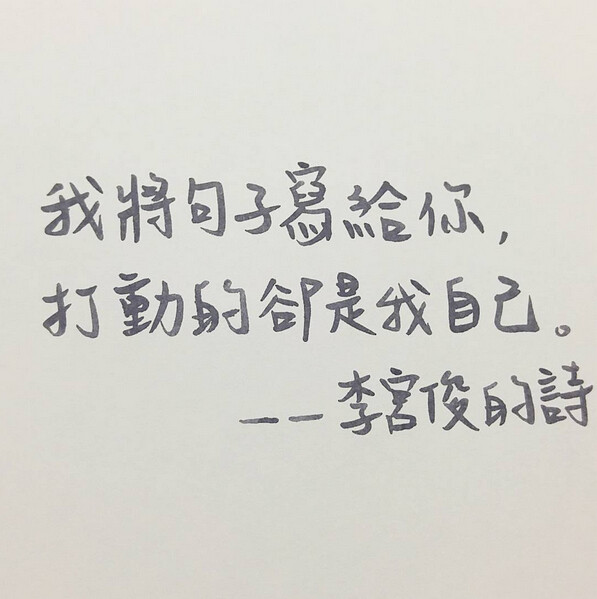 我將句子寫給你,
打動的卻是我自己。
——李宮俊的詩